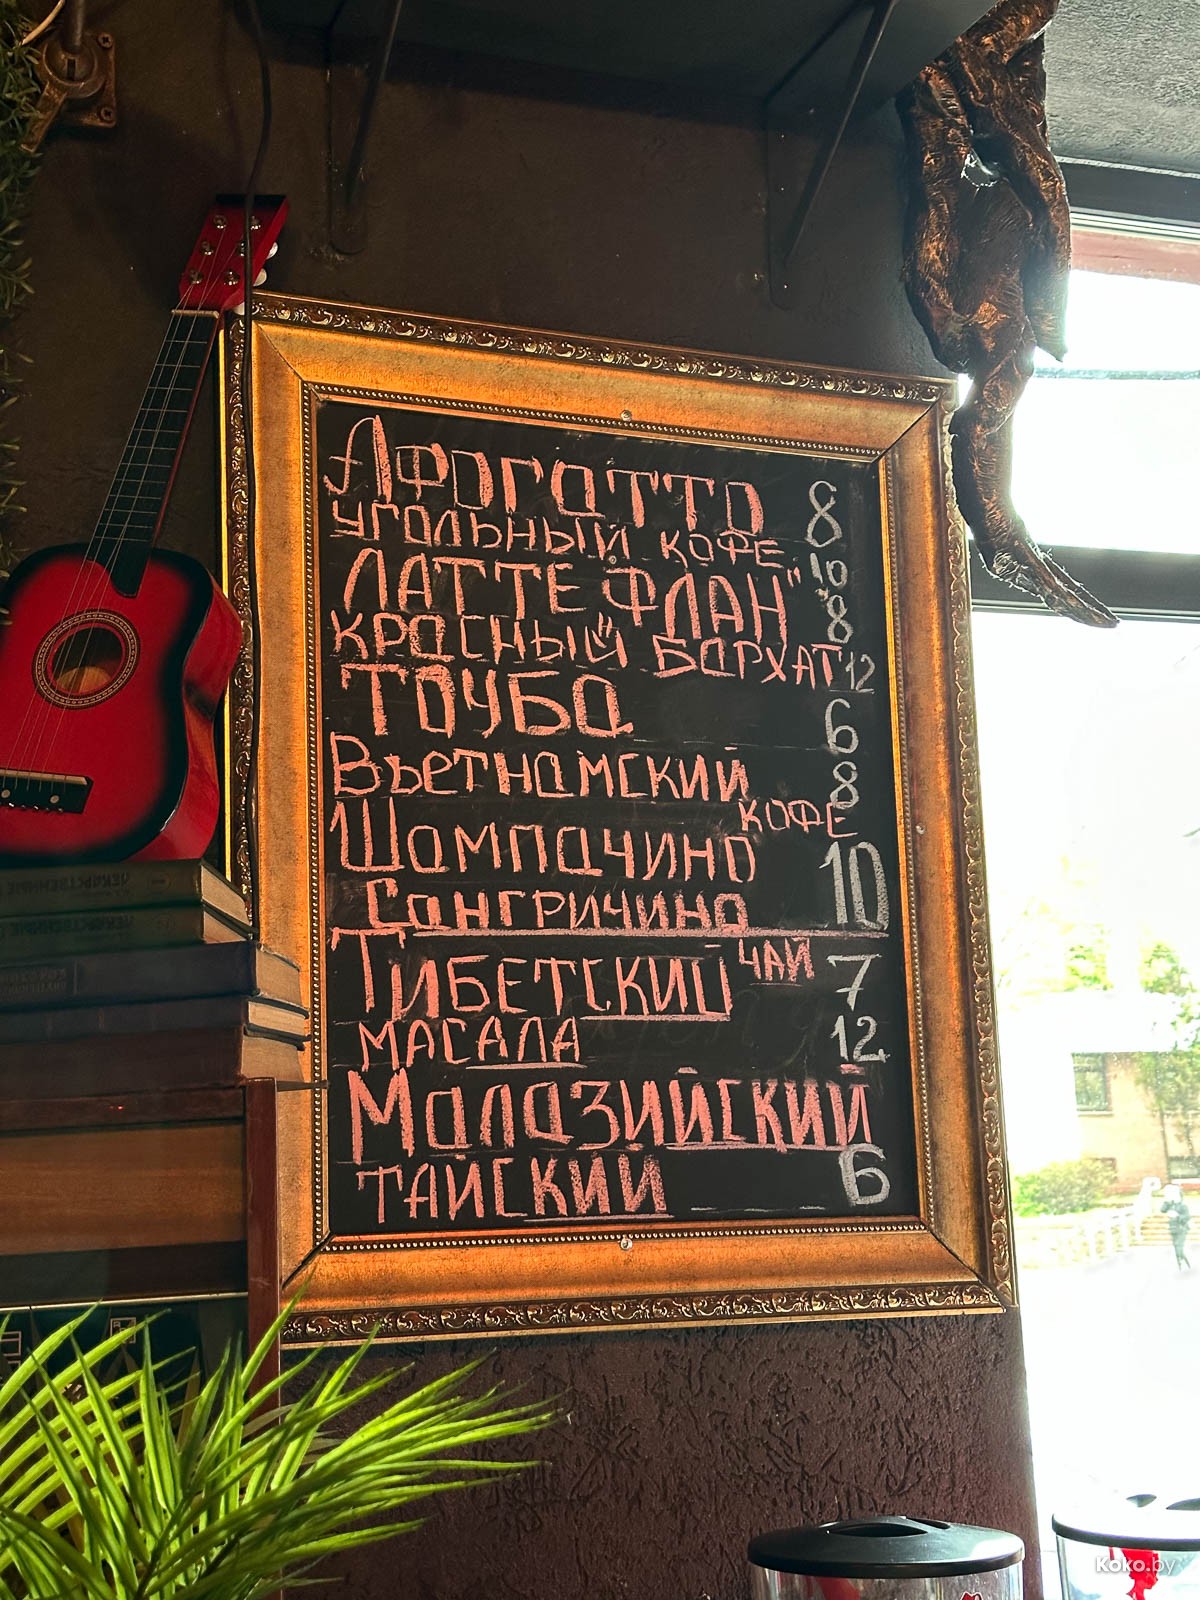 Афогатто 8
угольный кофе 10
Латте "Флан" 8
красный бархат 12
Тоуба 6
Вьетнамский 8
кофе
Шампачино 10
Сангричино
Тибетский чай 7
масала 12
Малазийский
тайский 6
ЛЕКАРСТВЕННЫЕ
ЛЕКАРСТВЕННЫЕ
Koko.by